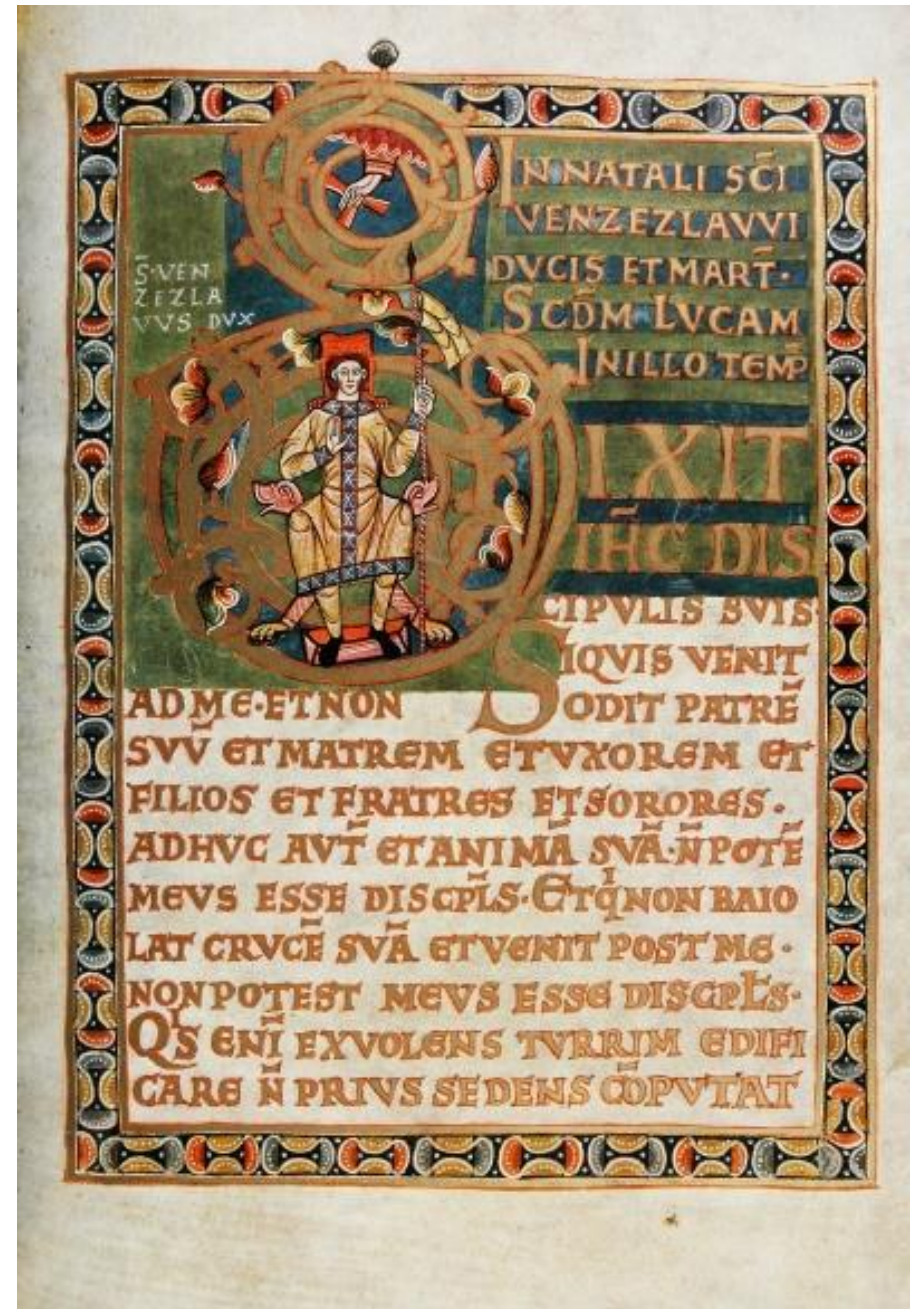 S̄·VEN
ZEZLA
VVS DVX
IN NATALI SC̄I
VENZEZLAVVI
DVCIS ET MART̄·
SCD̄M LVCAM
IN ILLO TEMP̄
DIXIT
IH̄C DIS
CIPVLIS SVIS·
SIQVIS VENIT
AD ME·ET NON ODIT PATRĒ
SVV̄ ET MATREM ET VXOREM ET
FILIOS ET FRATRES ET SORORES·
ADHVC AVT̄ ET ANIMĀ SVĀ·N̄ POTĒ
MEVS ESSE DISCPL̄S·ET QͥNON BAIO
LAT CRVCĒ SVĀ ET VENIT POST ME·
NON POTEST MEVS ESSE DISCPL̄S·
QͥS ENĪ EX VOLENS TVRRIM EDIFI
CARE N̄ PRIVS SEDENS CŌPVTAT